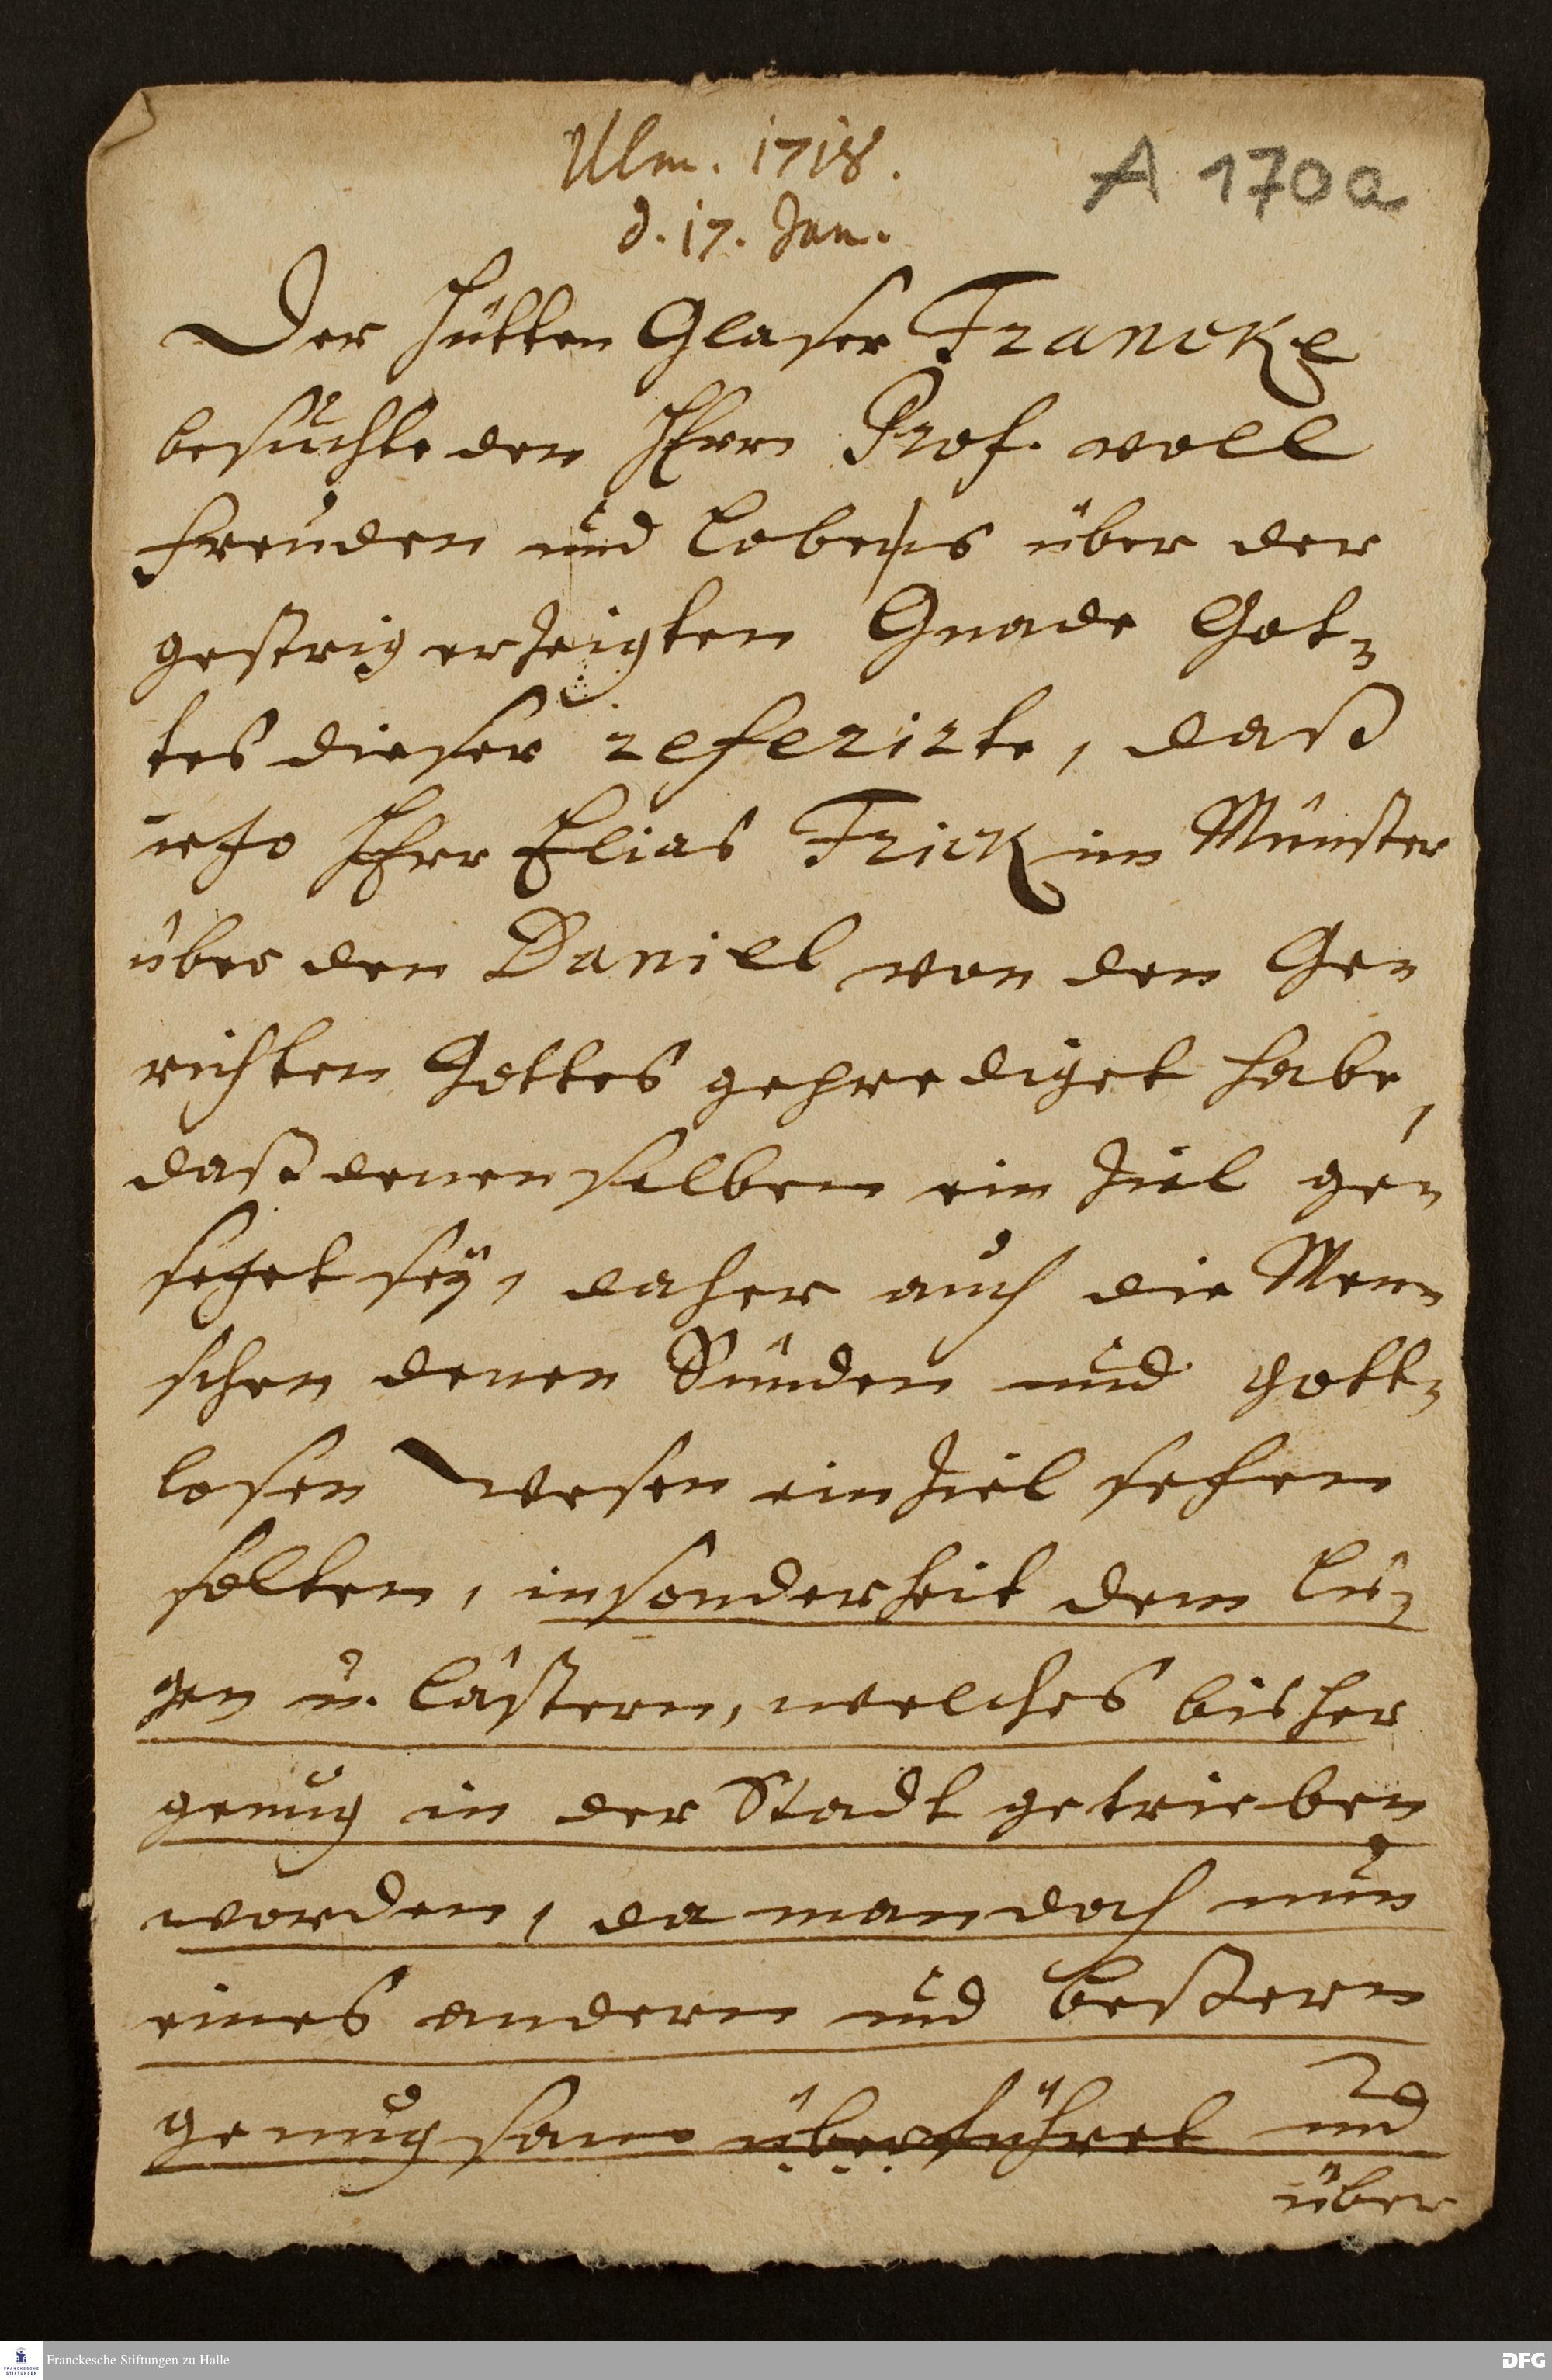 Ulm. 1718.
A 170a
d. 17. Jan.
Der Hütten Glaser Francke
besuchte den Herrn Prof. voll
Freuden und Lobens über der
gestrig erzeigten Gnade Got-
tes dieser referirte, daß
ietzo Herr Elias Frick im Münster
über den Daniel von den Ge-
richten Gottes geprediget habe,
daß denenselben ein Ziel ge-
setzet seÿ, daher auch die Men-
schen denen Sünden und gott-
losen Wesen ein Ziel setzen
solten, insonderheit dem Lü-
gen u. Lästern, welches bisher
genug in der Stadt getrieben
worden, da man doch nun
eines andern und beßern
genugsam überführet und
über
Franckesche Stiftungen zu Halle
DFG
FRANCKESCHE
STIFTUNGEN